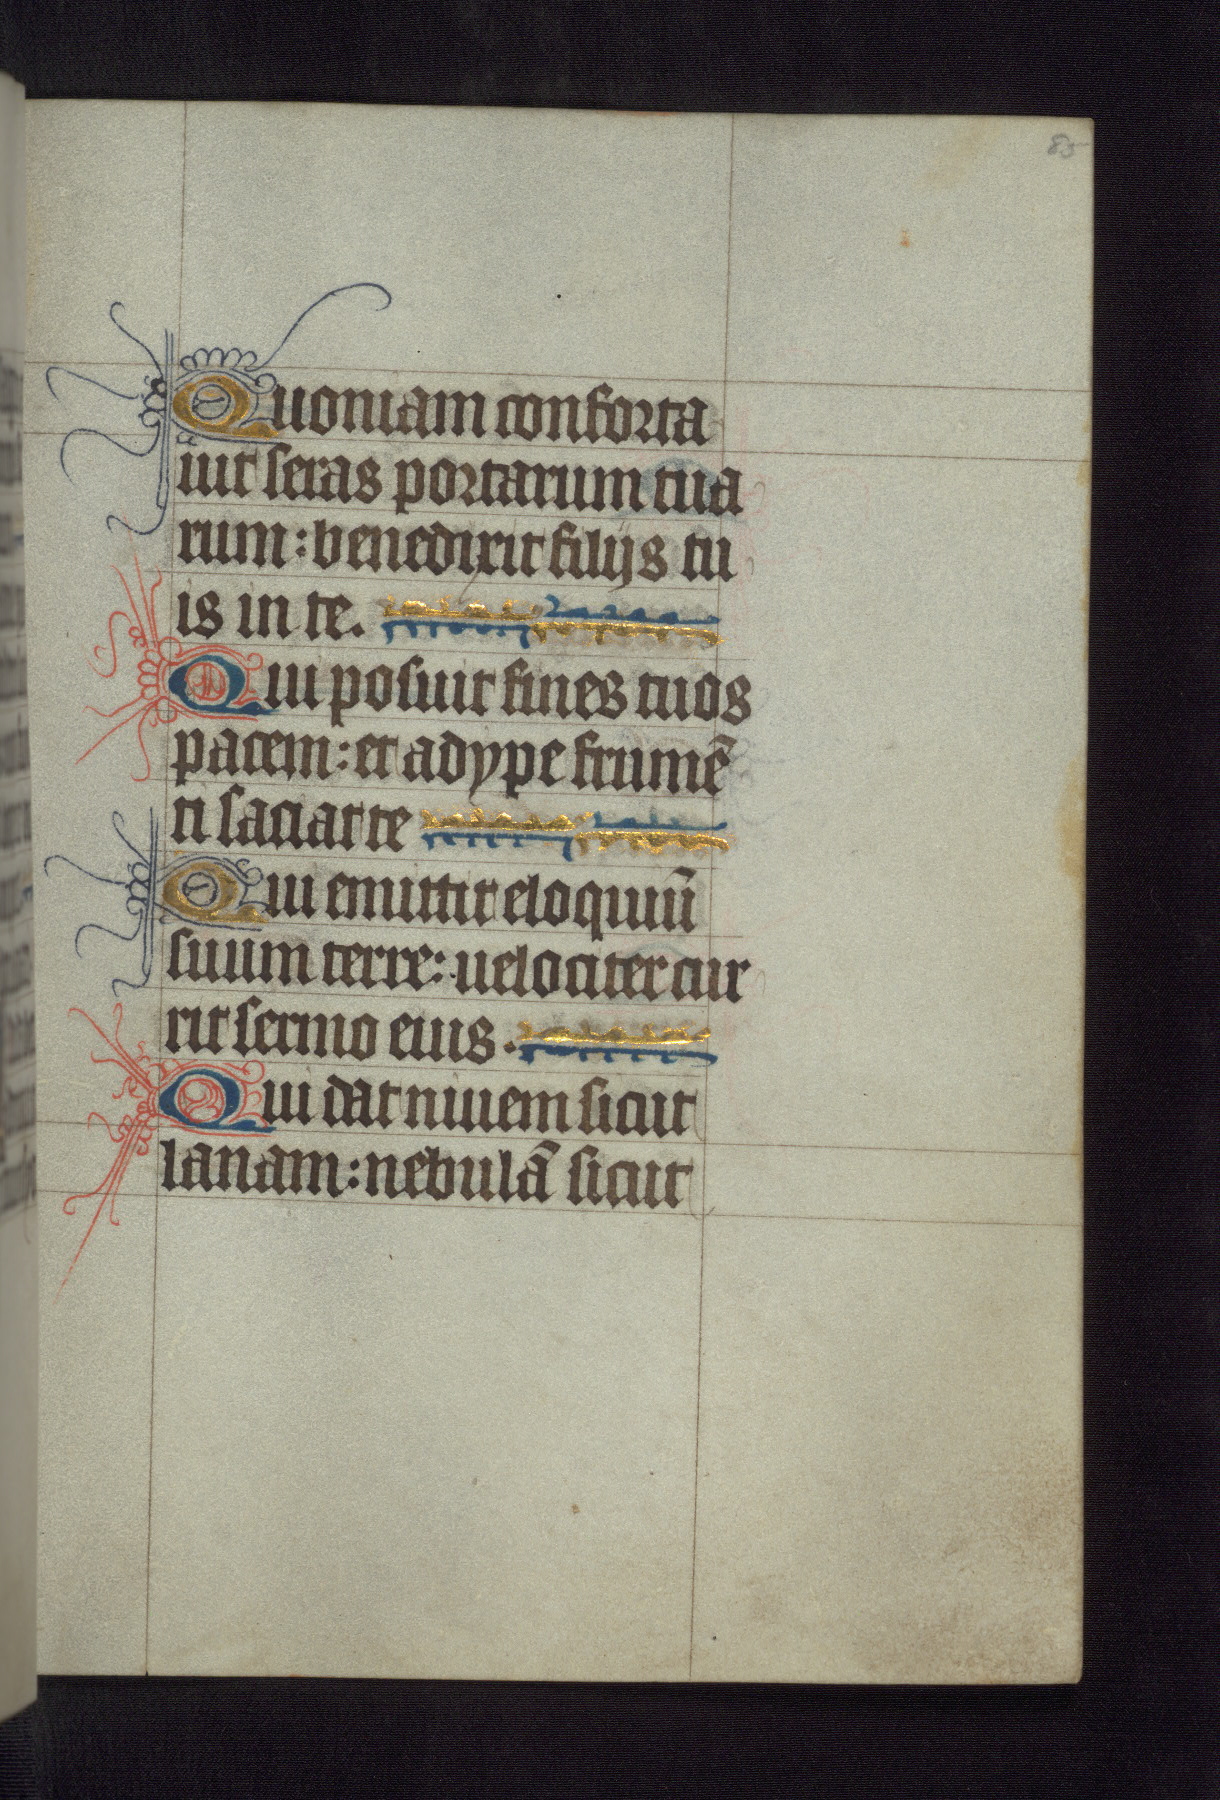 85
Quoniam conforta
uit seras portarum tua
rum: benedixit filijs tu
is in te.
Qui posuit fines tuos
pacem: et adype frumē
ti saciat te
Qui emittit eloquiū
suum terre: uelociter cur
rit sermo eius.
Qui dat niuem sicut
lanam: nebulā sicut